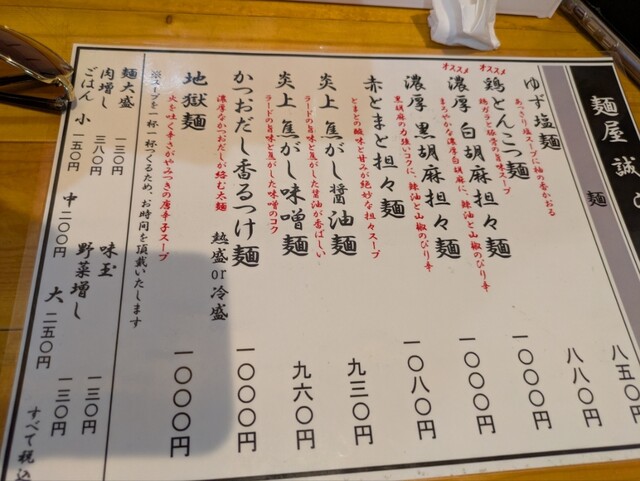 麺屋 誠
麺
ゆず塩麺 八五〇円
あっさり塩スープに柚の香かおる
オススメ
鶏とんこつ麺 八八〇円
鶏ガラと豚骨の旨味スープ
オススメ
濃厚 白胡麻担々麺 一〇〇〇円
まろやかな濃厚白胡麻に、辣油と山椒のぴり辛
濃厚 黒胡麻担々麺 一〇〇〇円
黒胡麻の力強いコクに、辣油と山椒のぴり辛
赤とまと担々麺 一〇八〇円
とまとの酸味と甘みが絶妙な担々スープ
炎上 焦がし醤油麺 九三〇円
ラードの旨味と焦がした醤油が香ばしい
炎上 焦がし味噌麺 九六〇円
ラードの旨味と焦がした味噌のコク
かつおだし香るつけ麺 熱盛or冷盛 一〇〇〇円
濃厚なかつおだしが絡む太麺
地獄麺 一〇〇〇円
火を吐く辛さがやみつきの唐辛子スープ
※スープを一杯一杯つくるため、お時間を頂戴いたします
麺大盛 一三〇円 味玉 一三〇円
肉増し 三八〇円 野菜増し 一三〇円
ごはん 小 一五〇円 中 二〇〇円 大 二五〇円
すべて税込